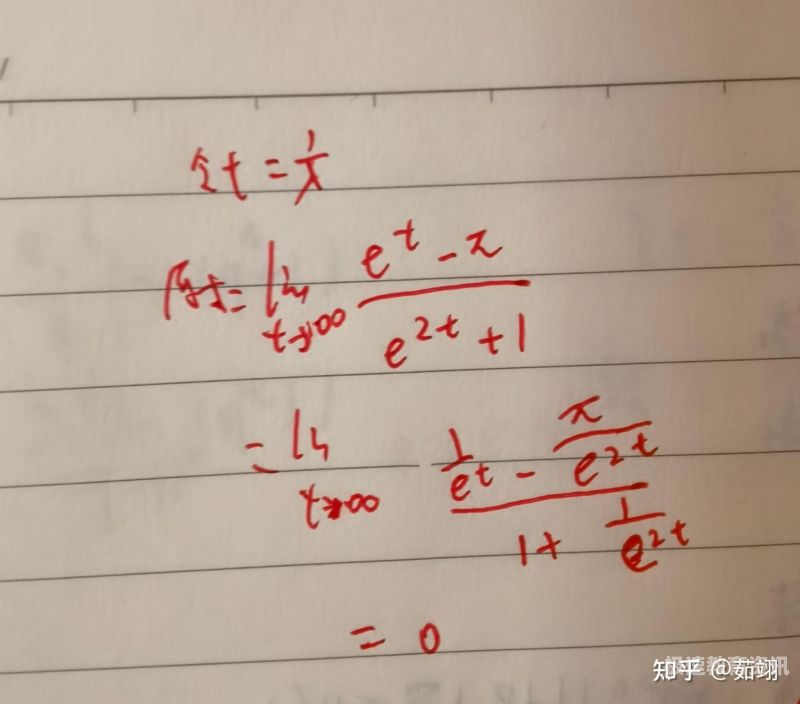 令t = 1/x
原式 = lim t→∞ (e^t - π)/(e^{2t} + 1)
= lim t→∞ (1/e^t - π/e^{2t})/(1 + 1/e^{2t})
= 0
极速教育资讯
知乎 @茹翊